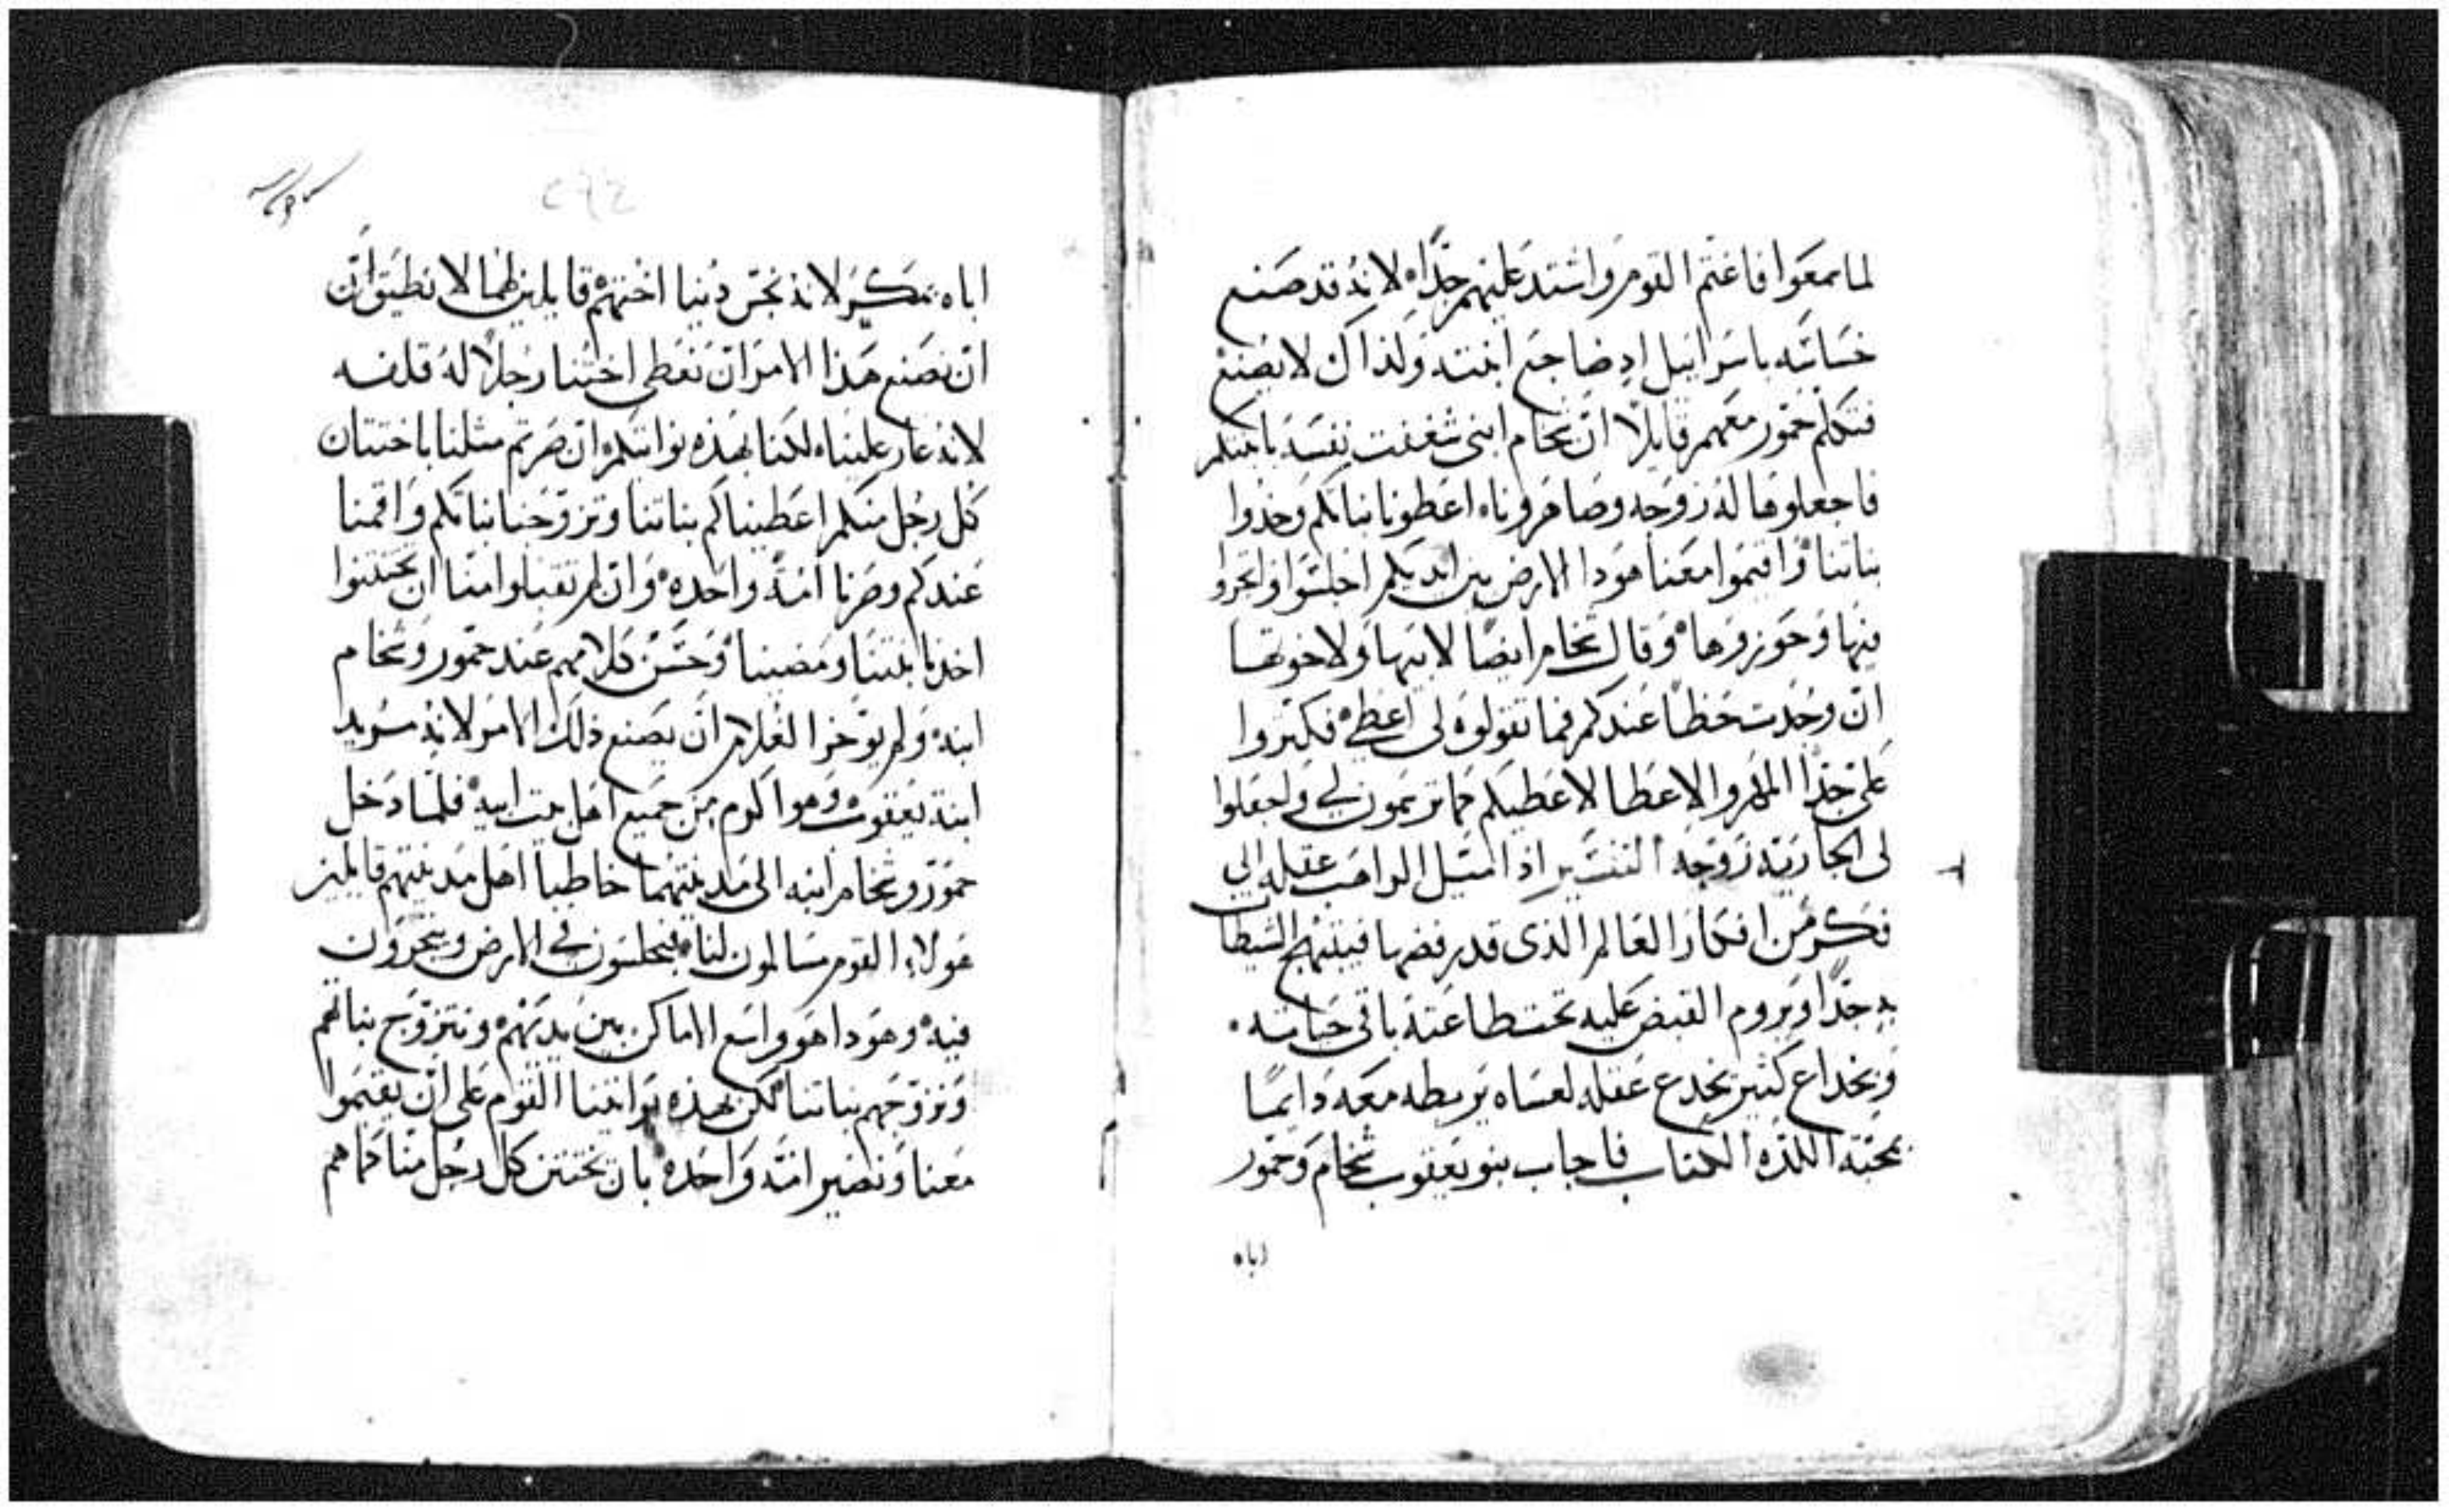 لما سمعوا فاغتم القوم واشتد عليهم جدًا لانه قد صنع
خساسه باسراييل اذ ضاجع ابنته ولذاك لا يصنع
فتكلم حمّور معهم قايلاً ان شخام ابني شغفت نفسه بابنتكم
فاجعلوها له زوجه وصاهرونا اعطونا بناتكم وخذوا
بناتنا واقيموا معنا هوذا الارض بين ايديكم اجلسوا واتجروا
فيها وحوزوها وقال شخام ايضًا لابيها ولاخوتها
ان وجدت حظًا عندكم فما تقولوه لي اعطي فكثروا
على جدًا المهر والاعطا لاعطيكم كما ترسمون لي واجعلوا
لي الجاريه زوجه التفسير اذا امتيل الراهب عقله الي
فكر من افكار العالم الذي قد رفضها فيبتهج الشيطان
به جدًا ويروم القبض عليه تحت طاعته باقي حياته
وبخداع كثير يخدع عقله لعساه يربطه معه دايمًا
بمحبة اللذه الكتاب فاجاب بنو يعقوب شخام وحمور
اباه
اباه بمكر لانه نجّس دينا اختهم قايلين لهما لا نطيق ان
ان نصنع هذا الامر ان نعطي اختنا رجلاً له قلفه
لانه عار علينا لكنا بهذه نواتيكم ان صرتم مثلنا باختتان
كل رجل منكم اعطيناكم بناتنا وتزوجنا بناتكم واقمنا
عندكم وصرنا امّةً واحده وان لم تقبلوا منّا ان تختتنوا
اخذنا بنتنا ومضينا وحسن كلامهم عند حمّور وشخام
ابنه ولم يوخر الغلام ان يصنع ذلك الامر لانه مريد
ابنة يعقوب وهو اكرم من جميع اهل بيت ابيه فلما دخل
حمّور وشخام ابنه الى مدينتهما خاطبا اهل مدينتهم قايلين
هولاء القوم مسالمون لنا فيجلسون في الارض ويتجرون
فيه وهوذا هو واسع الاماكن بين يديهم ونتزوج بناتهم
ونزوجهم بناتنا لكن بهذه يواتينا القوم على ان يقيموا
معنا ونصير امّة واحده بان نختتن كل رجل منّا كما هم